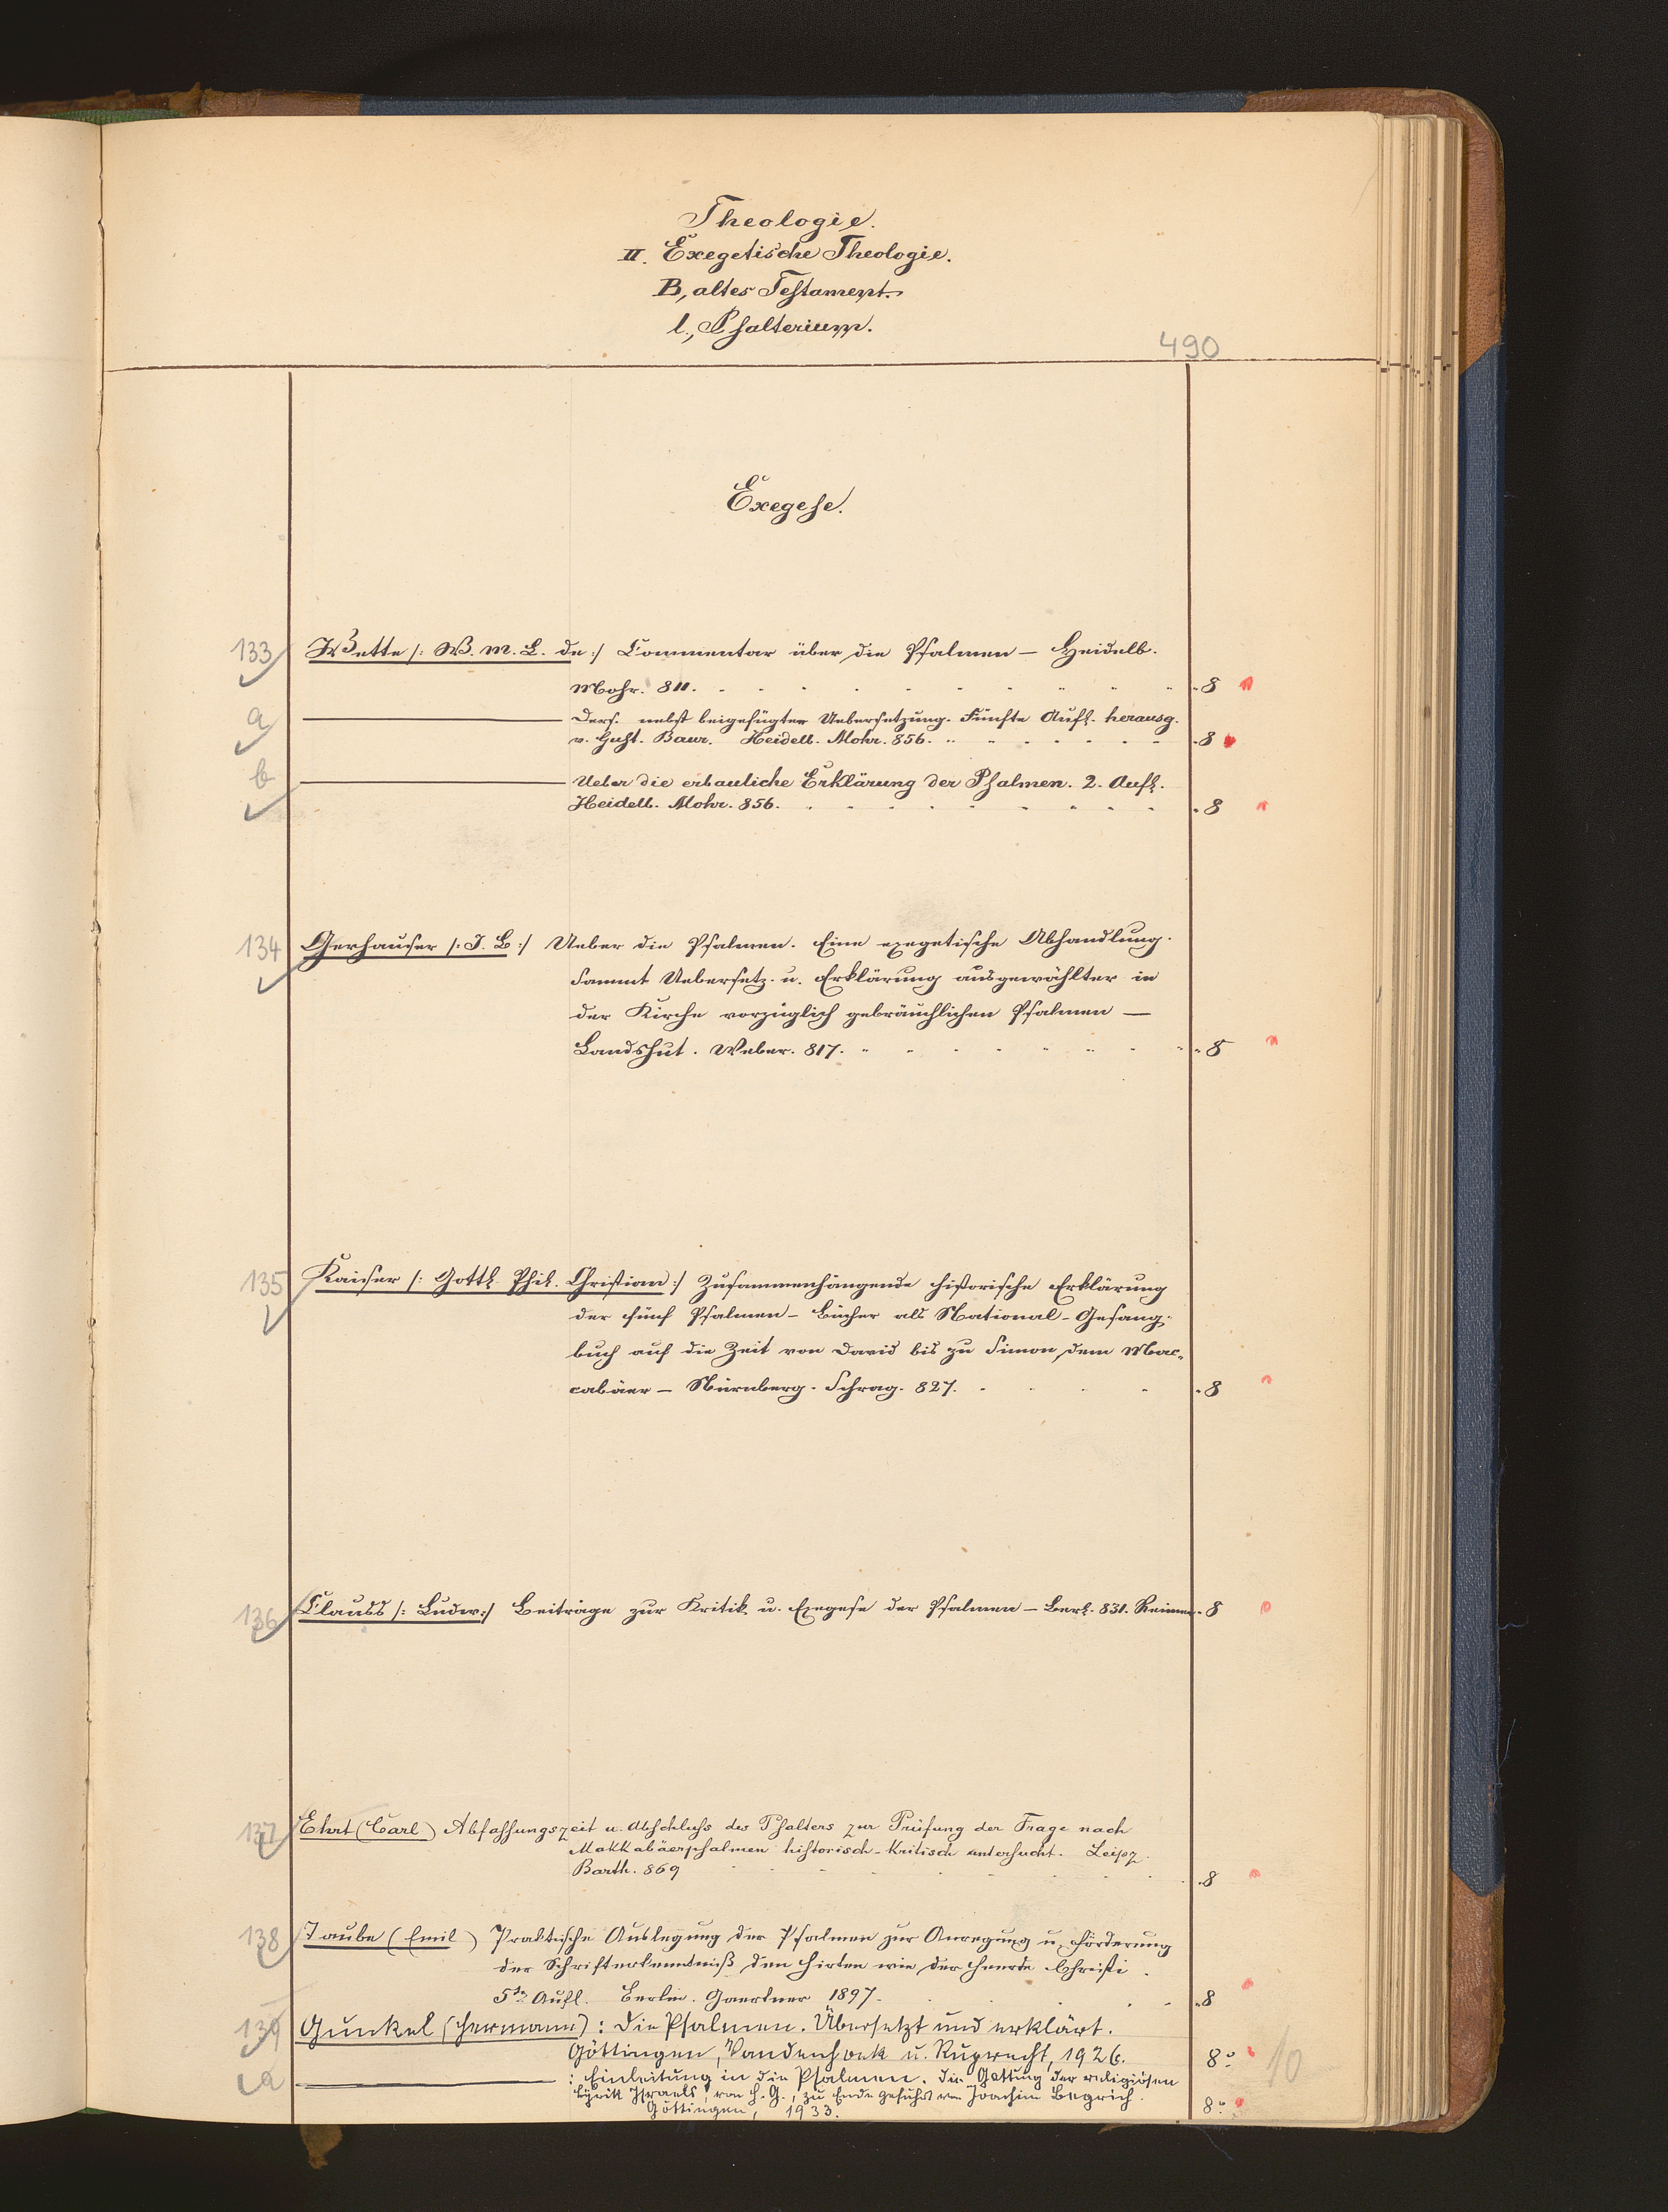 Theologie.
II. Exegetische Theologie.
B, altes Testament.
l., Psalterium.
490
Exegese.
133 Wette /: W. M. L. de :/ Commentar über die Psalmen – Heidelb.
Mohr. 811. 8
a ——— Ders. nebst beigefügter Uebersetzung. Fünfte Aufl. herausg.
v. Gust. Baur. Heidelb. Mohr. 856. 8
b ——— Ueber die erbauliche Erklärung der Psalmen. 2. Aufl.
Heidelb. Mohr. 856. 8
134 Gerhauser /: J. B :/ Ueber die Psalmen. Eine exegetische Abhandlung.
sammt Uebersetz. u. Erklärung ausgewählter in
der Kirche vorzüglich gebräuchlichen Psalmen –
Landshut. Weber. 817. 8
135 Kaiser /: Gottl. Phil. Christian :/ Zusammenhängende historische Erklärung
der fünf Psalmen-Bücher als National-Gesang-
buch auf die Zeit von David bis zu Simon dem Mac-
cabäer – Nürnberg. Schrag. 827. 8
136 Clauss /: Ludw :/ Beiträge zur Kritik u. Exegese der Psalmen – Berl. 831. Reimer. 8
137 Ehrt (Carl) Abfassungszeit u. Abschluss des Psalters zur Prüfung der Frage nach
Makkabäerpsalmen historisch-kritisch untersucht. Leipz.
Barth. 869 8
138 Taube (Emil) Praktische Auslegung der Psalmen zur Anregung u. Förderung
der Schrifterkenntniß den Hirten wie der Heerde Christi.
5te Aufl. Berlin. Gaertner 1897. 8
139 Gunkel (Hermann): Die Psalmen. Übersetzt und erklärt.
Göttingen, Vandenhoek u. Ruprecht, 1926. 8° 10
a ——— : Einleitung in die Psalmen. Die Gattung der religiösen
Lyrik Israels, von H. G., zu Ende geführt von Joachim Begrich.
Göttingen, 1933. 8°